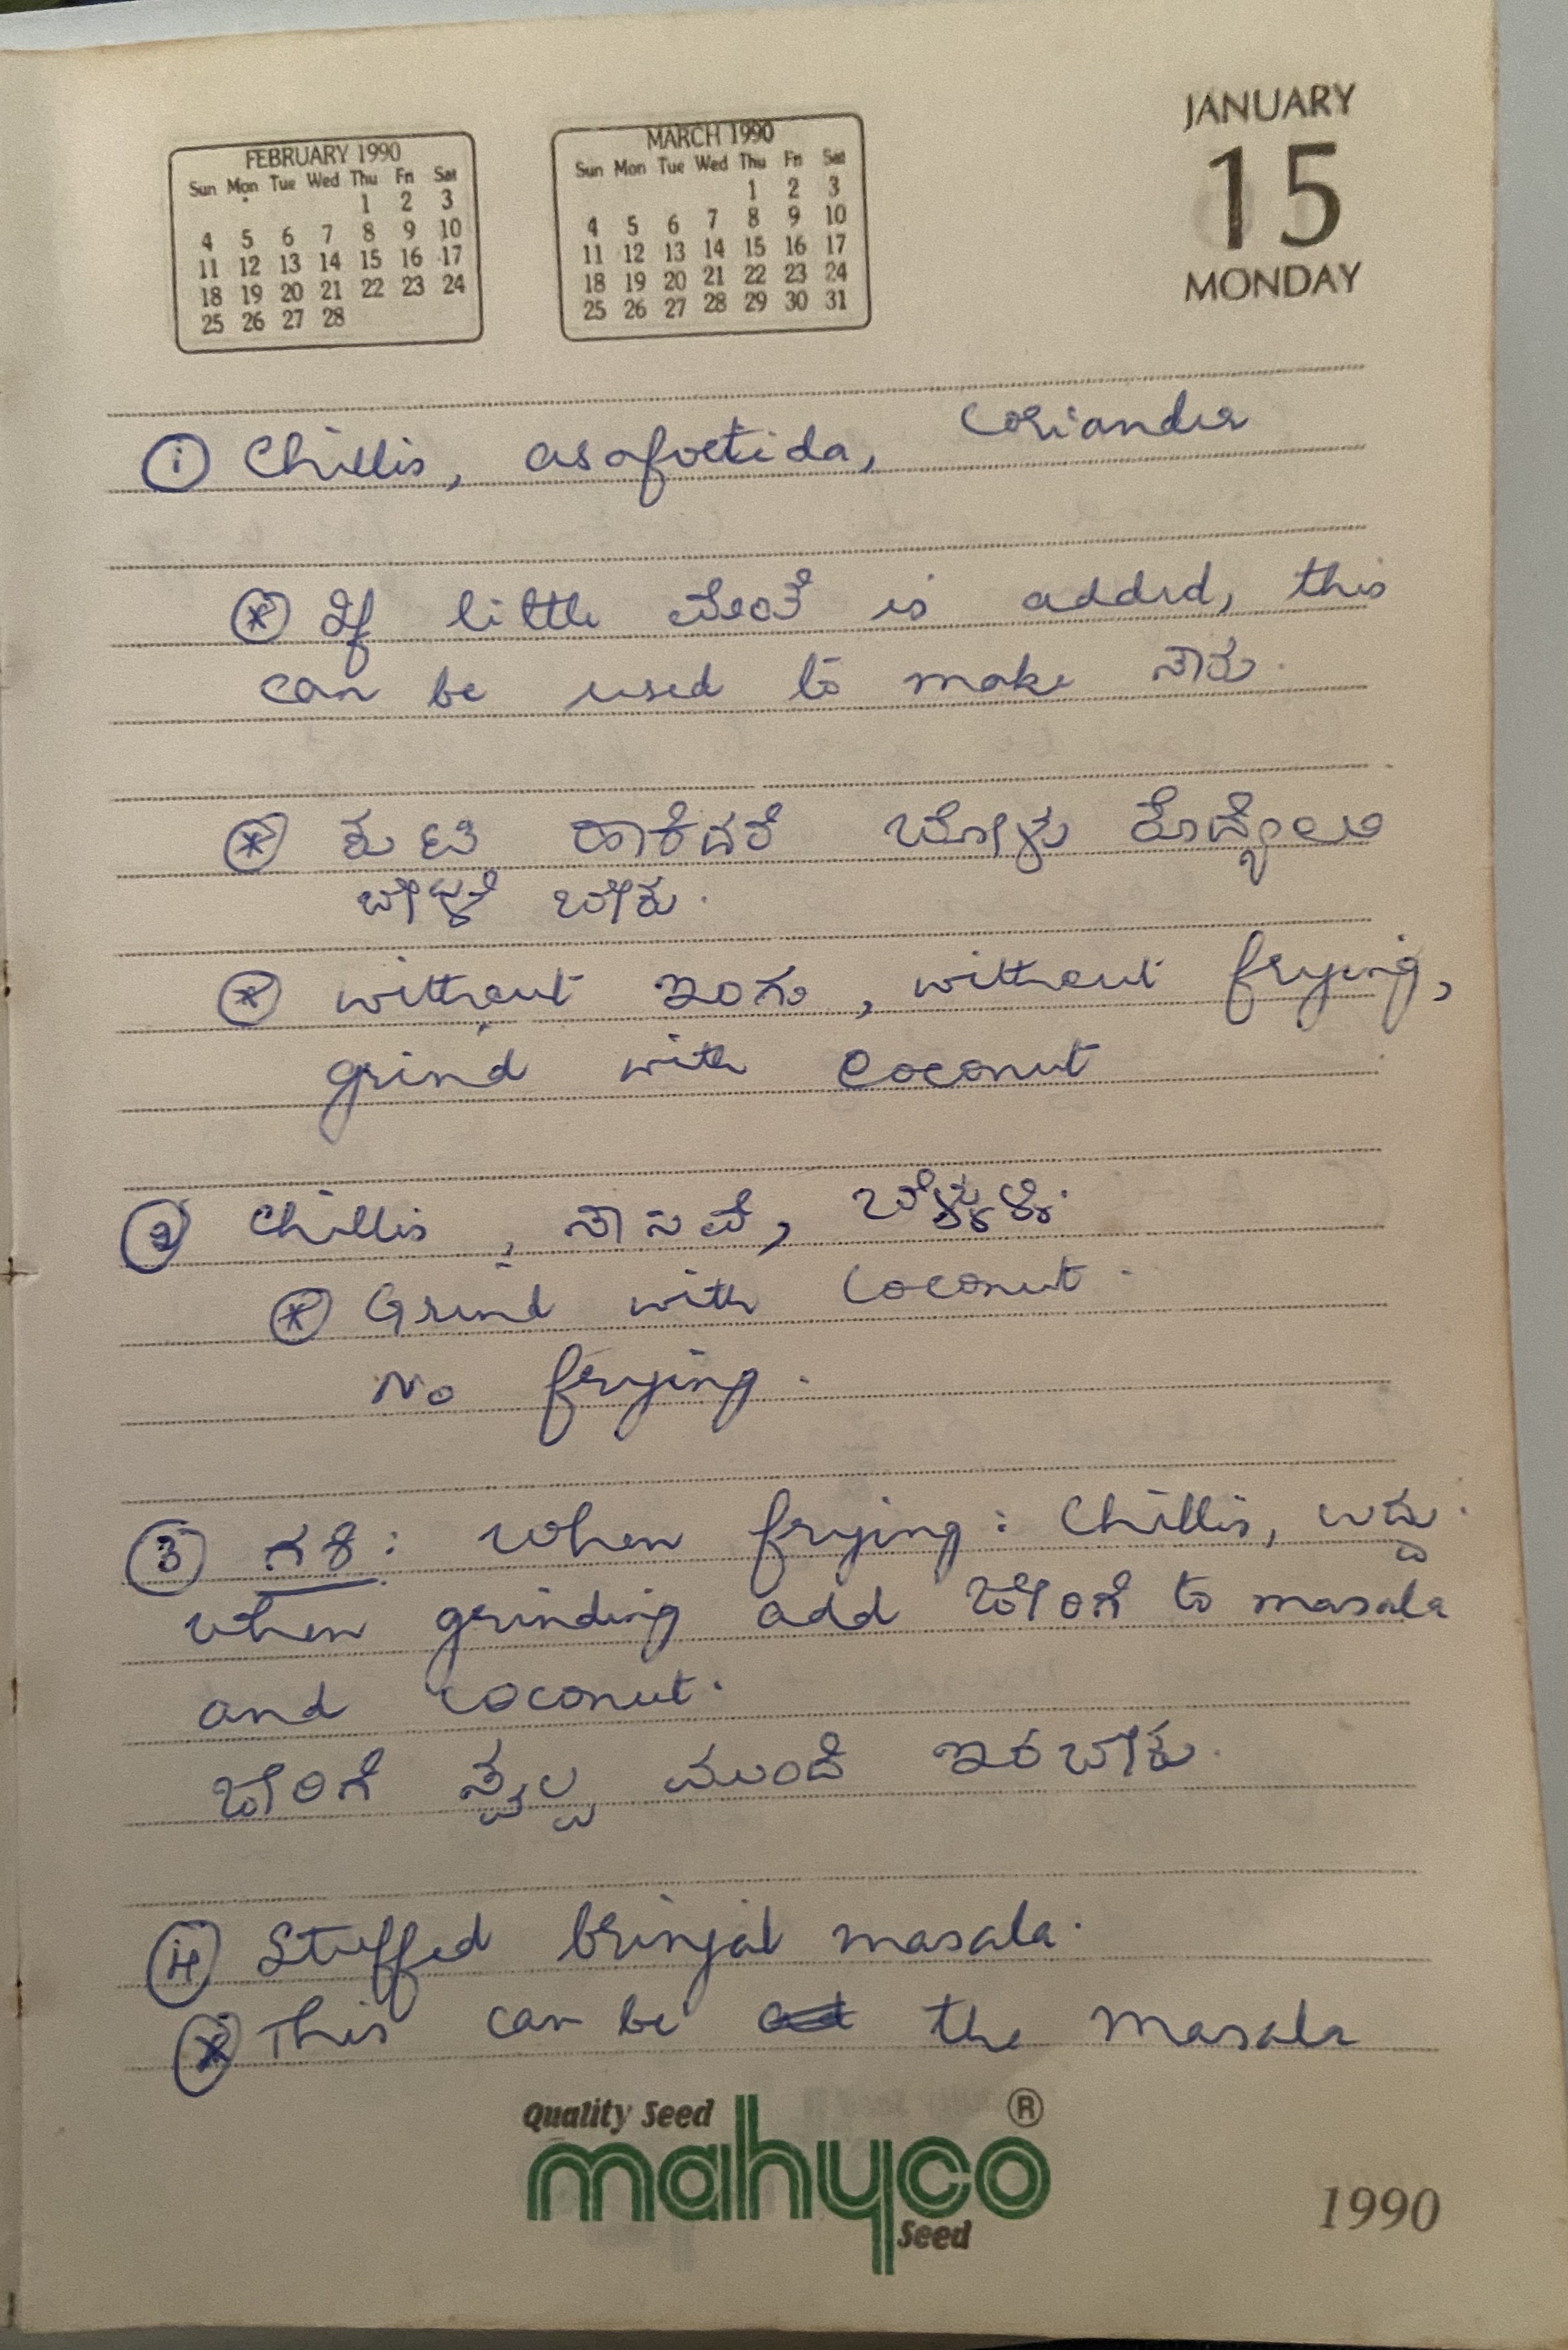 JANUARY
15
MONDAY
FEBRUARY 1990
Sun Mon Tue Wed Thu Fri Sat
1 2 3
4 5 6 7 8 9 10
11 12 13 14 15 16 17
18 19 20 21 22 23 24
25 26 27 28
MARCH 1990
Sun Mon Tue Wed Thu Fri Sat
1 2 3
4 5 6 7 8 9 10
11 12 13 14 15 16 17
18 19 20 21 22 23 24
25 26 27 28 29 30 31
① Chillis, asafoetida, coriander
* If little ಮೆಂತೆ is added, this
can be used to make ಸಾರು.
* ಹಾಕಿದರೆ
ಬೇಳೆ ಬೇಕು.
* without ಇಂಗು, without frying,
grind with coconut
② Chillis, ಸಾಸವೆ,
* Grind with coconut.
No frying.
③ ಗಶಿ: when frying: Chillis, ಉದ್ದು.
when grinding add to masala
and coconut.
ಸ್ವಲ್ಪ ಮುಂದೆ ಇರಬೇಕು.
④ Stuffed brinjal masala.
* This can be the masala
Quality Seed
mahyco ®
Seed
1990